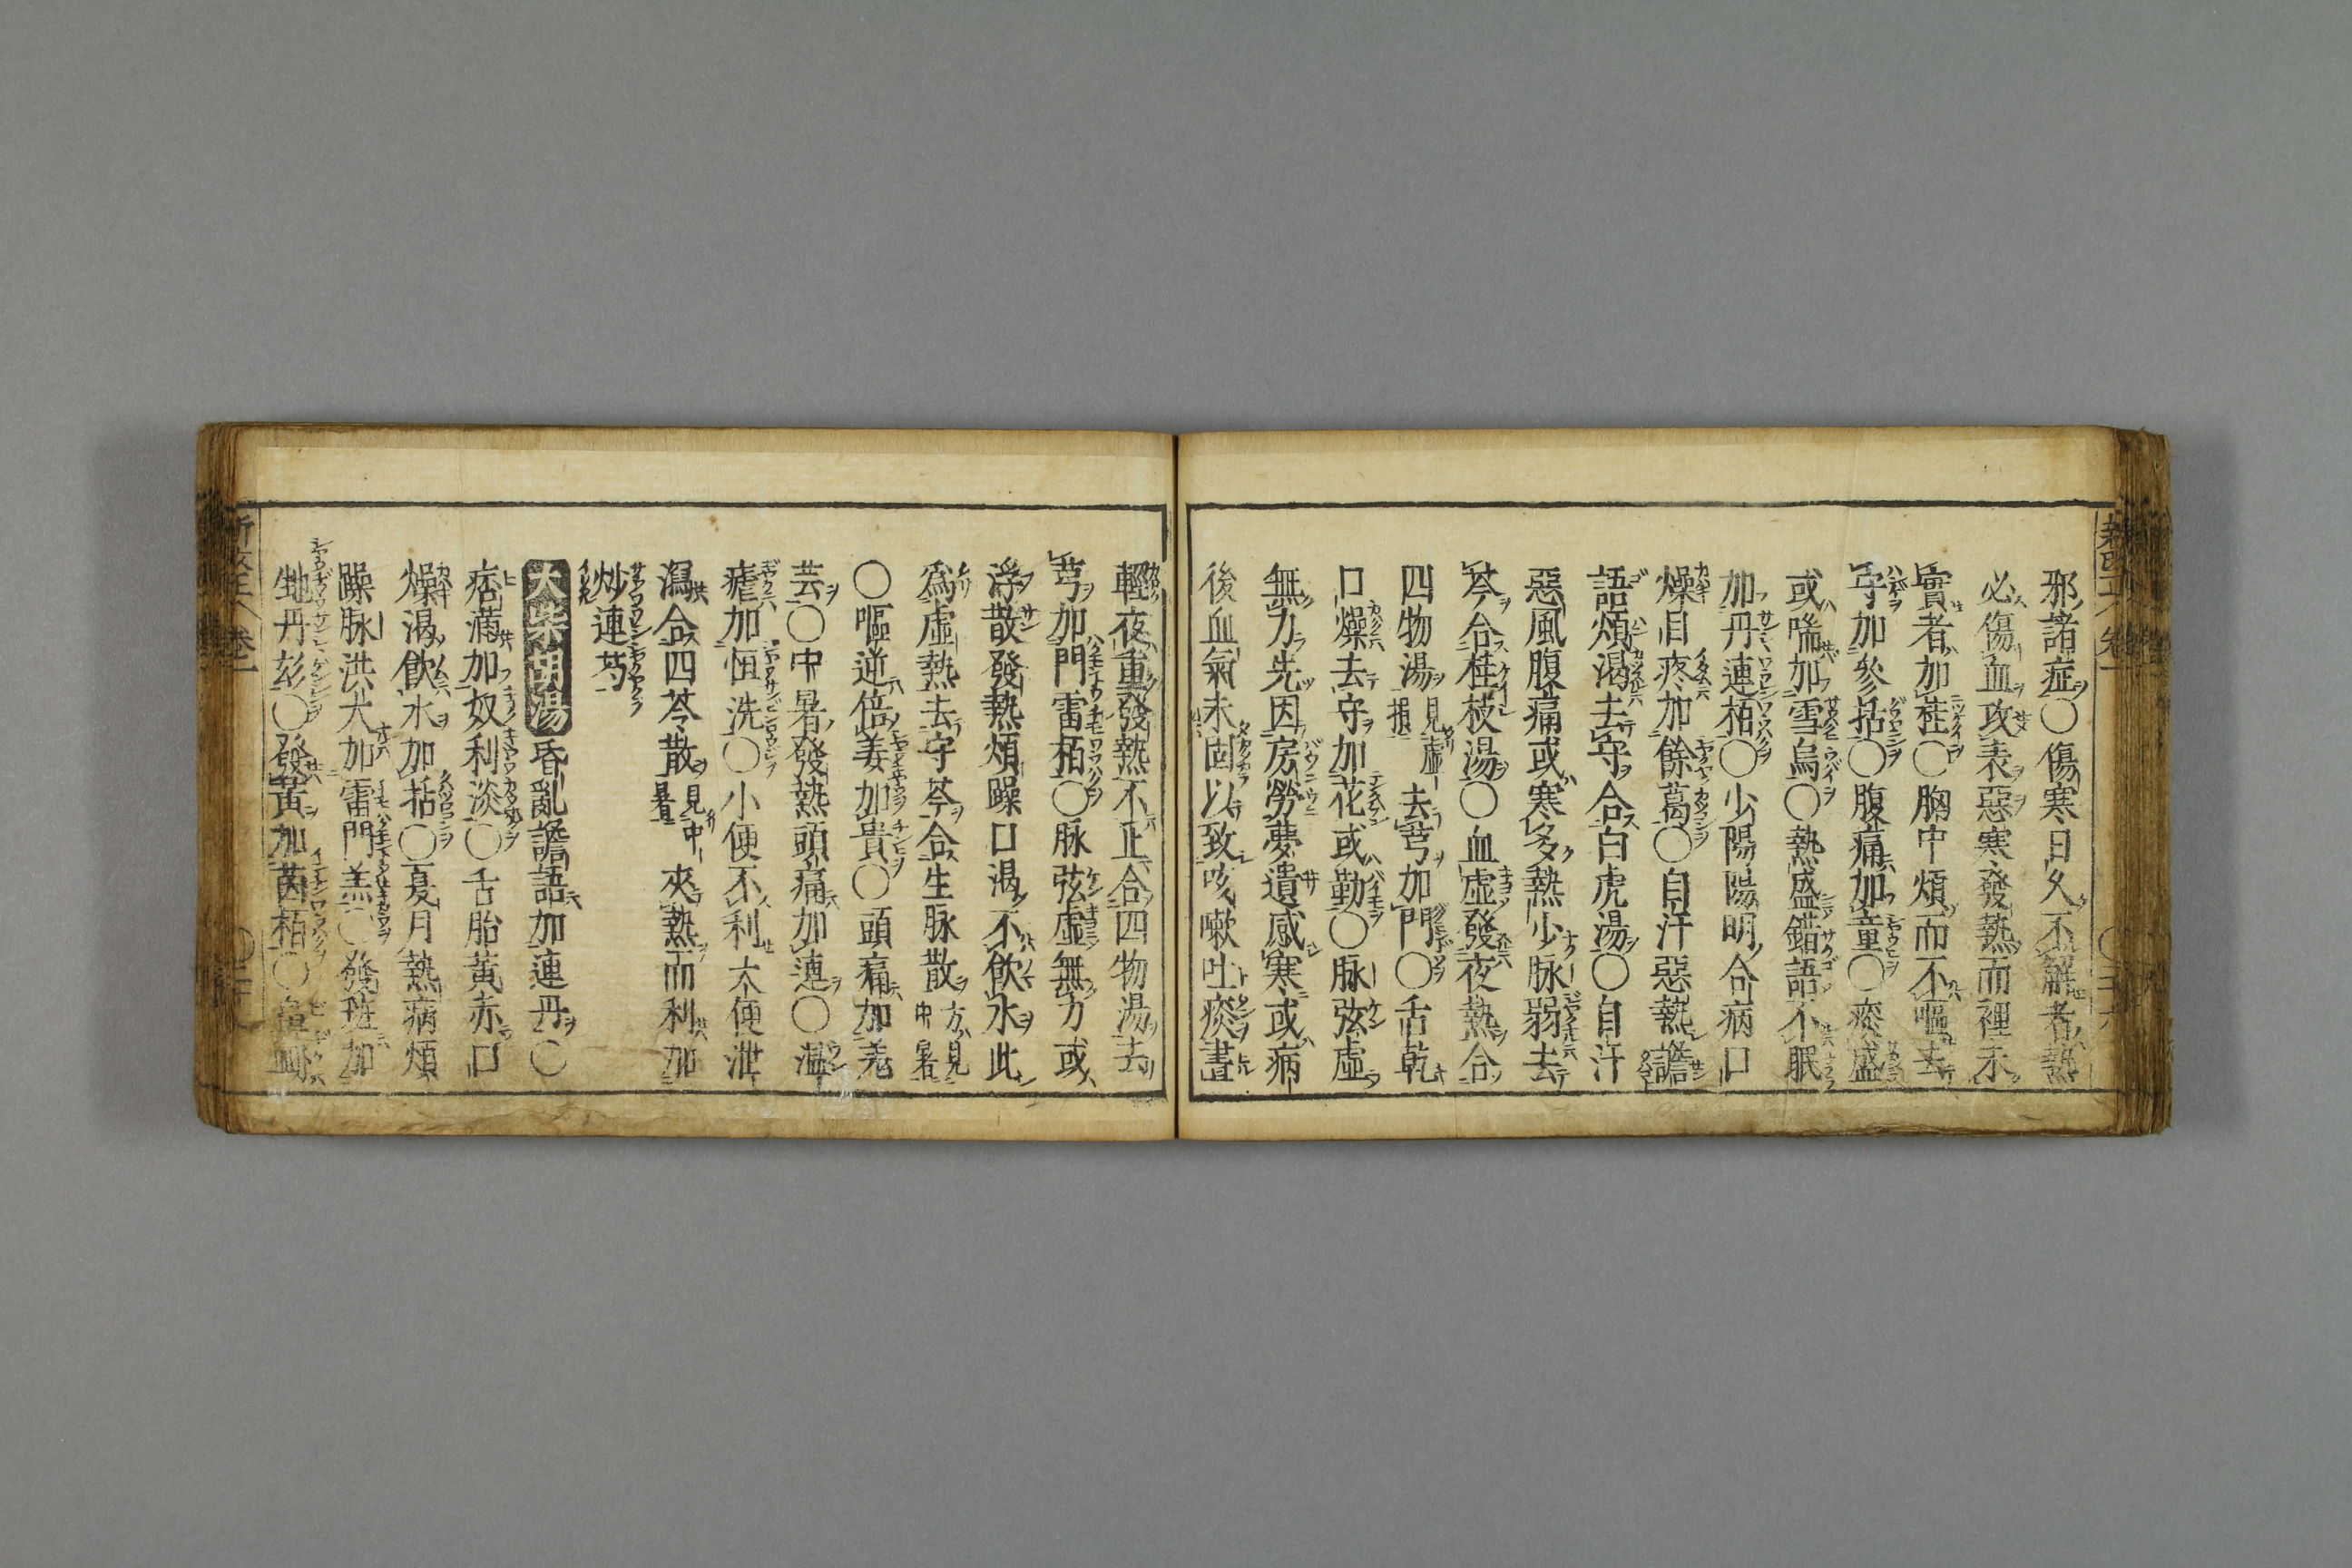 邪諸症○傷寒日久不解者熱
必傷血攻表惡寒發熱而裡未
實者加桂○胸中煩而不嘔去
守加參括○腹痛加童○痰盛
或喘加雪烏○熱盛錯語不眠
加丹連栢○少陽陽明合病口
燥目疼加餘葛○自汗惡熱譫
語煩渴去守合白虎湯○自汗
惡風腹痛或寒多熱少脉弱去
芩合桂枝湯○血虛發夜熱合
四物湯見虛損去芎加門○舌乾
口燥去守加花或勤○脉弦虛
無力先因房勞夢遺感寒或病
後血氣未固以致咳嗽吐痰晝
輕夜重發熱不止合四物湯去
芎加門雷栢○脉弦虛無力或
浮散發熱煩躁口渴不飲水此
爲虛熱去守芩合生脉散方見中暑
○嘔逆倍姜加貴○頭痛加羌
芸○中暑發熱頭痛加連○溫
瘧加恒洗○小便不利大便泄
瀉合四苓散見中暑夾熱而利加
炒連芍
大柴胡湯昏亂譫語加連丹○
痞滿加奴利淡○舌胎黃赤口
燥渴飲水加括○夏月熱病煩
躁脉洪大加雷門羔○發斑加
地丹彭○發黃加茵栢○